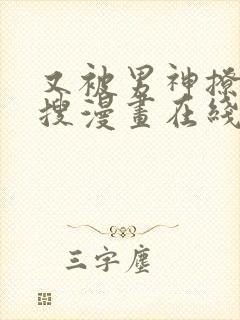 又被男神撩
搜漫畫在綫
三字塵